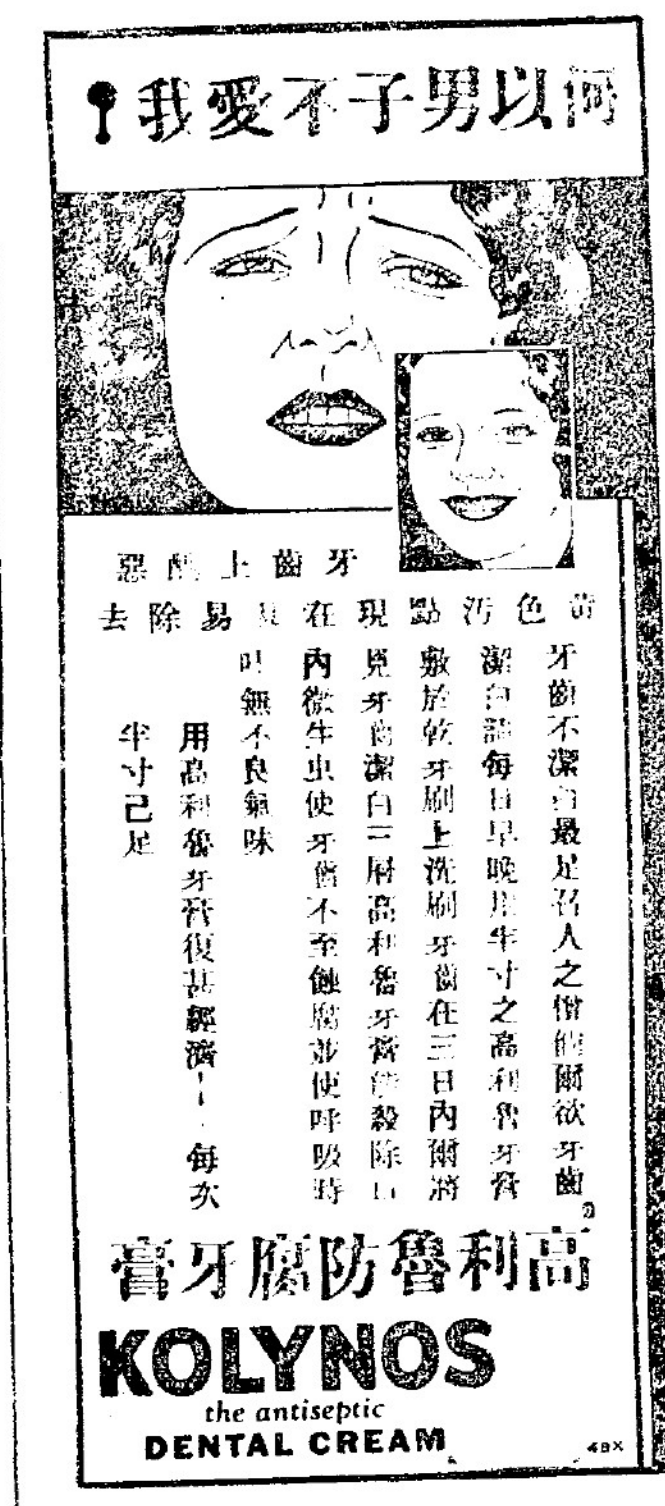 何以男子不愛我?
牙齒上醜惡
黃色污點現在易除去
牙齒不潔白最足召人之憎爾欲牙齒
潔白請每日早晚用半寸之高利魯牙膏
敷於乾牙刷上洗刷牙齒在三日內爾將
見牙齒潔白三層高利魯牙膏能殺除口
內微生虫使牙齒不至蝕腐並使呼吸時
吐無不良氣味
用高利魯牙膏復甚經濟——每次
半寸已足
高利魯防腐牙膏
KOLYNOS
the antiseptic
DENTAL CREAM
48X